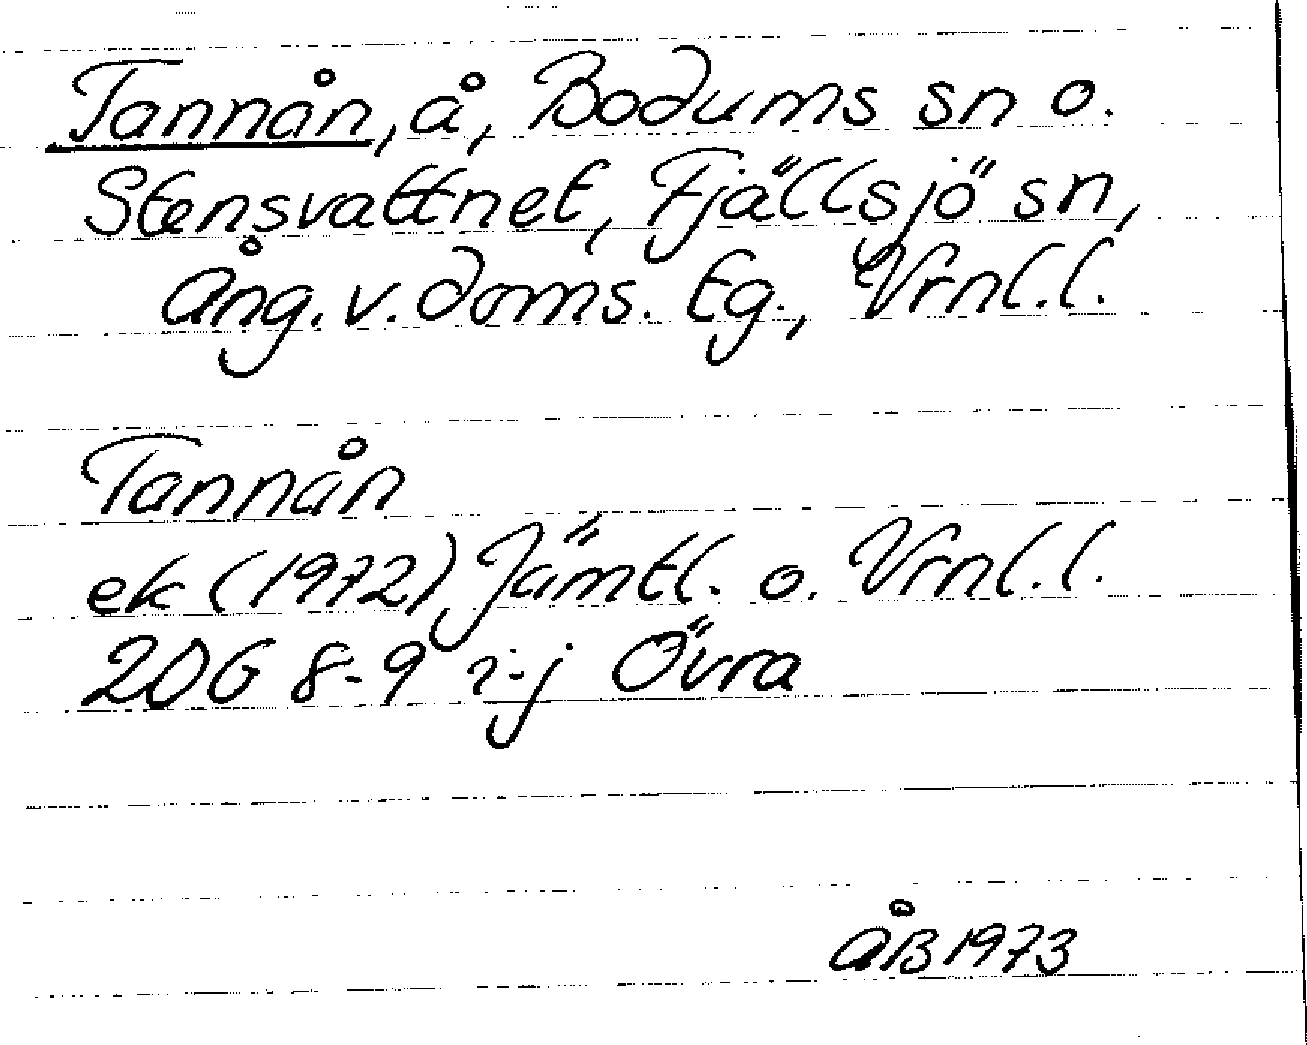 Tannån, å, Bodums sn o.
Stensvattnet, Fjällsjö sn,
Ång. v. doms. tg., Vrnl.l.
Tannån
ek (1972) Jämtl. o. Vrnl.l.
20G 8-9 i-j Övra
ÅB 1973